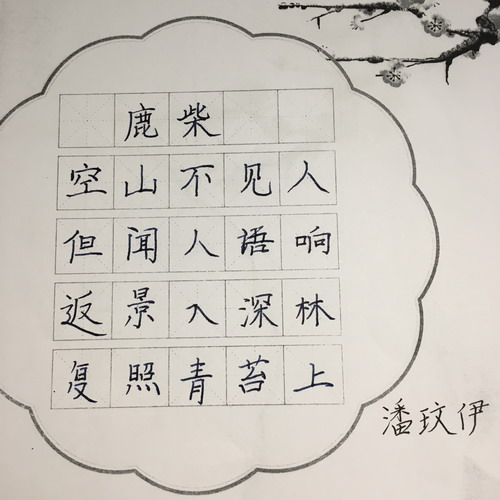 鹿柴
空山不见人
但闻人语响
返景入深林
复照青苔上
潘玟伊